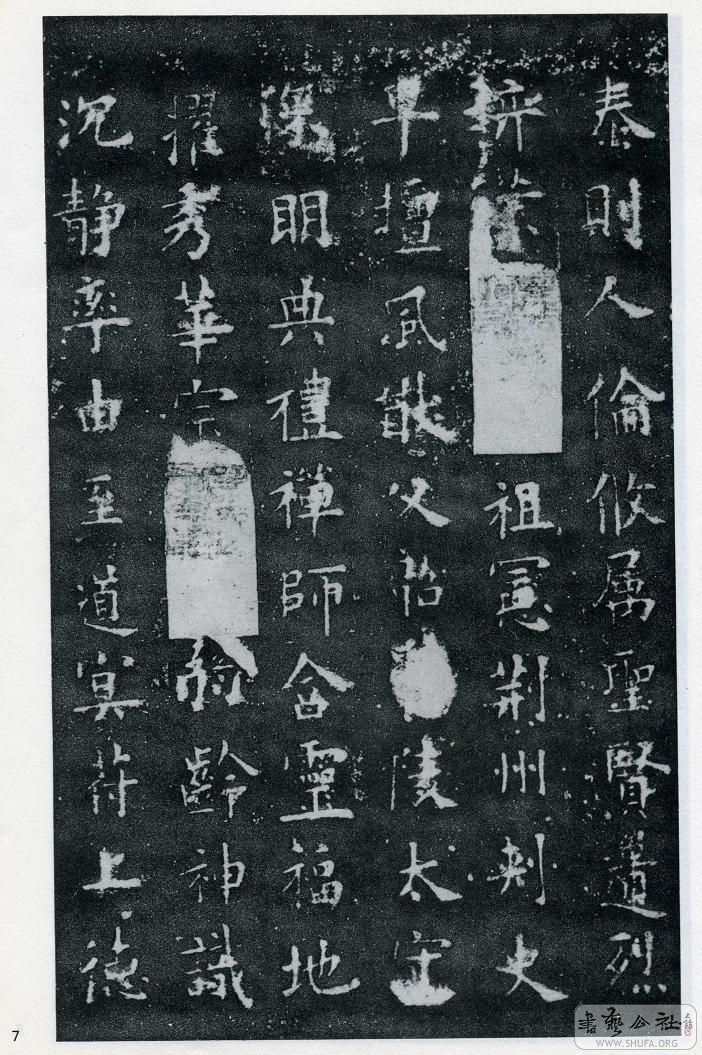 泰則人倫攸属聖賢遺烈
祖憲荊州刾史
早擅風猷父陵太守
深明典禮禪師含靈福地
擢秀華宗齡神識
沉靜率由至道冥符上德
7
書藝公社
WWW.SHUFA.ORG